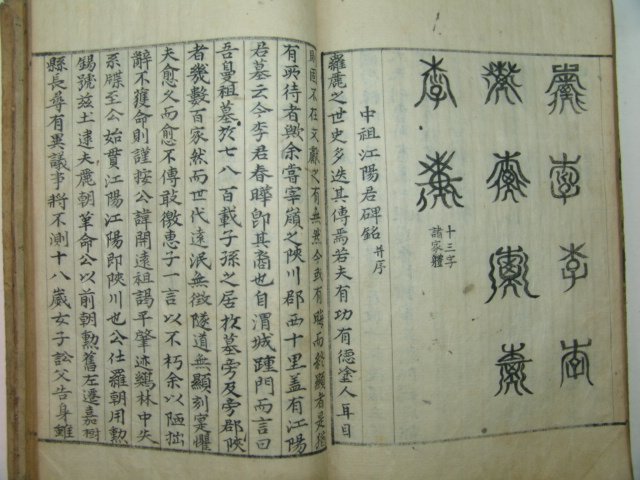 李 李 李
李
十三字
諸家體
中祖江陽君碑銘 并序
羅麗之世史多迭其傳焉若夫有功有德塗人耳目
固不在文獻之有無然今或有晦而終顯者是
有所待者歟余嘗宰嶺之陜川郡西十里盖有江陽
君墓云今李君春曄卽其裔也自渭城踵門而言曰
吾鼻祖墓於七八百載子孫之居於墓旁及旁郡陜
者幾數百家然而世代遠泯無徵隧道無顯刻寔懼
夫愈久而愈不傳敢徼惠子一言以不朽余以陋拙
辭不獲命則謹按公諱開遠祖謁平肇迹鷄林中失
系牒至公始貫江陽江陽卽陜川也公仕羅朝用勳
錫號玆土逮夫麗朝革命公以前朝勳舊左遷嘉樹
縣長尋有異議事將不測十八歲女子訟父告身雖